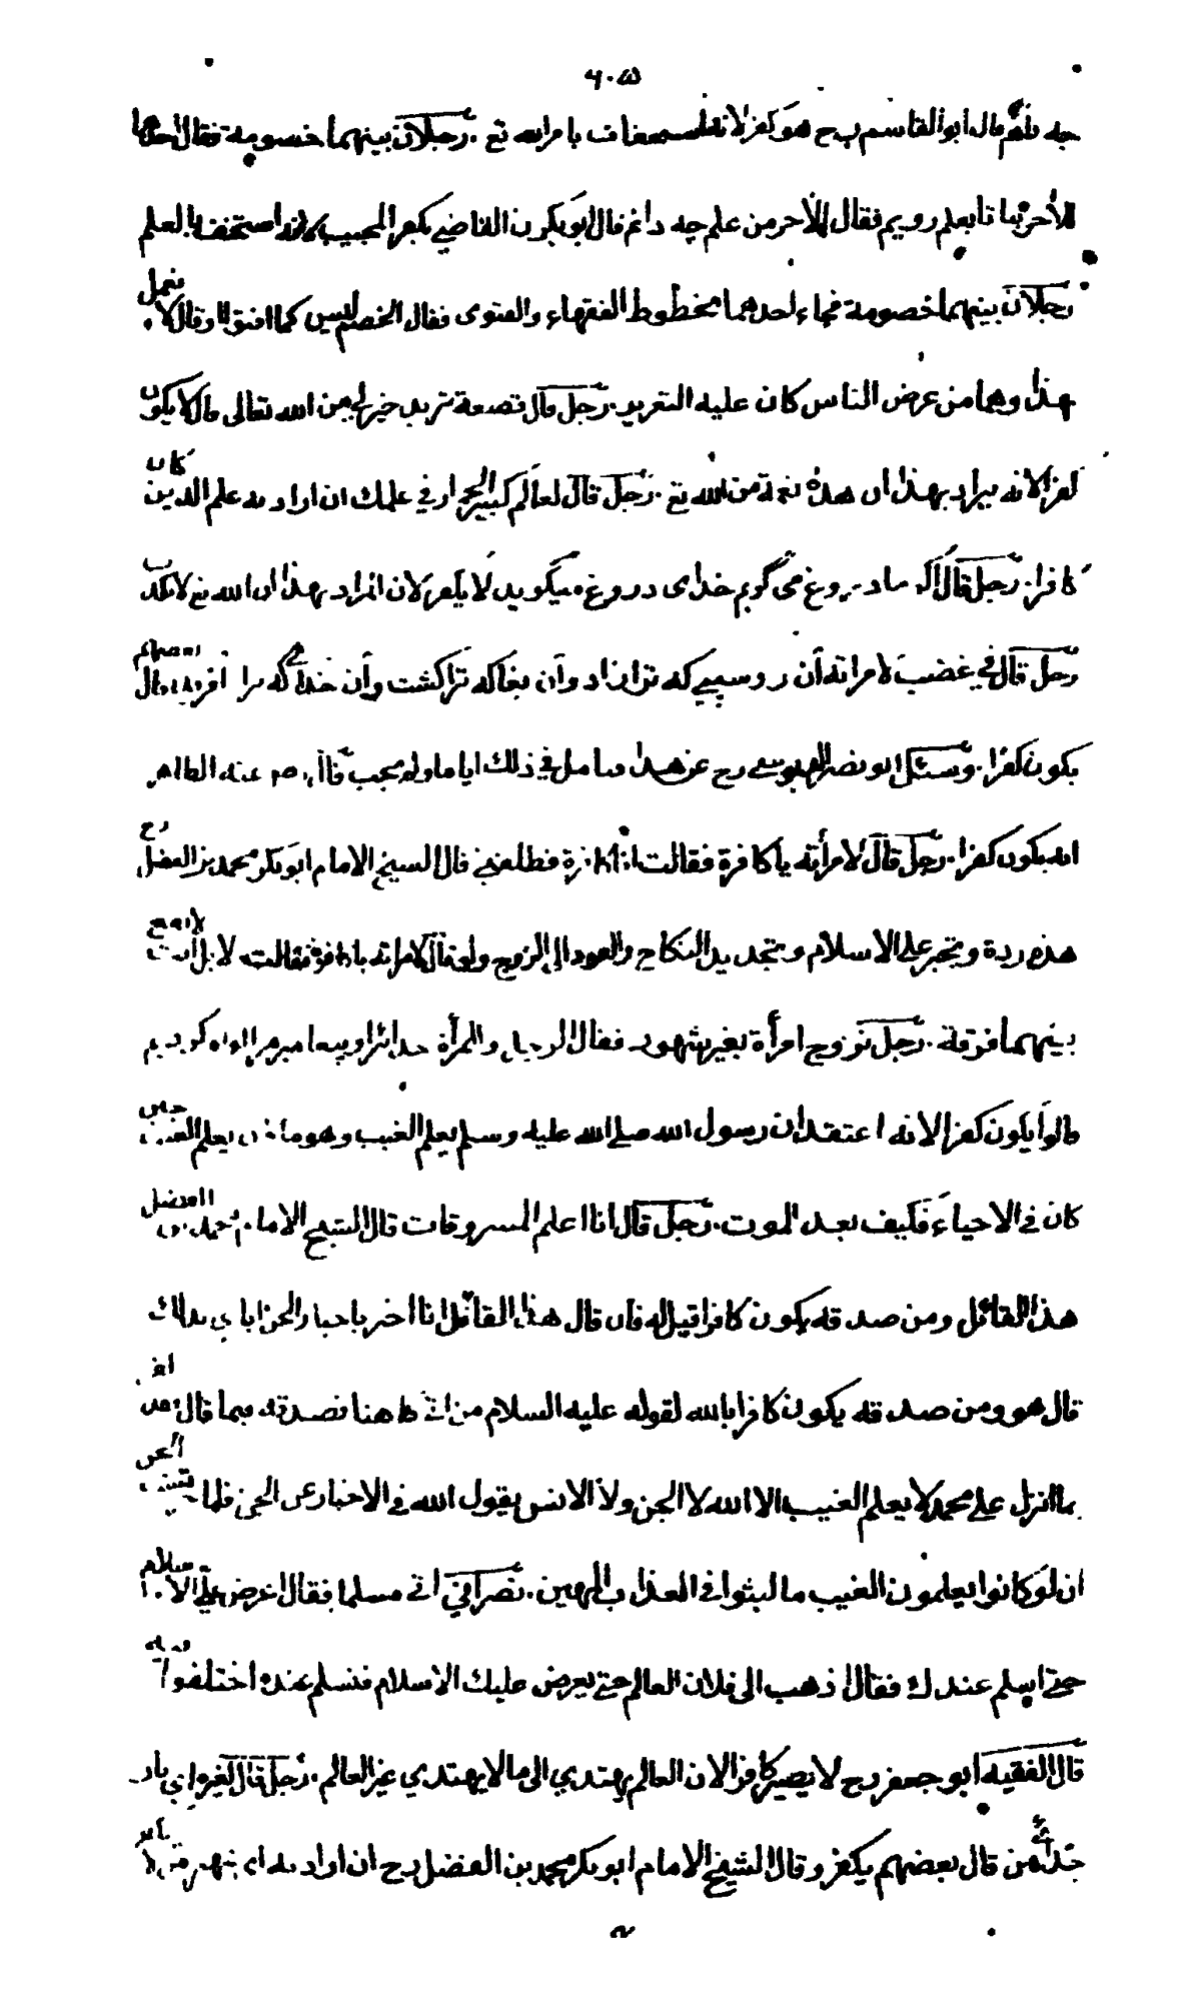 ٦٠٥
جه دانم قال ابو القاسم رح هو كفر لانه استخفاف بامر الله تع . رجلان بينهما خصومة فقال احدهما
للآخر بيا تا بعلم رويم فقال الآخر من علم چه دانم قال ابو بكر القاضي يكفر المجيب لانه استخف بالعلم
رجلان بينهما خصومة فجاء احدهما بخطوط الفقهاء والفتوى فقال الخصم ليس كما افتوا او قال لا نعمل
بهذا وهما من عرض الناس كان عليه التعزير . رجل قال قصعة ثريد خير لي من الله تعالى قالوا لا يكون
كفرا لانه يراد بهذا ان هذه نعمة من الله تع . رجل قال لعالم كبير الحمار في علمك ان اراد به علم الدين كان
كافرا . رجل قال اگر ما دروغ مى گويم خداى دروغ ميگويد لا يكفر لان المراد بهذا ان الله تع لا يكذب
رجل قال في غضب لامرأته آن روسپى كه ترا زاد وآن بغا كه ترا كشت وآن خداى كه ترا آفريد قال بعضهم
يكون كفرا . وسئل ابو نصر الدبوسي رح عن هذا فتامل في ذلك اياما ولم يجب قال رض عنه الظاهر
انه يكون كفرا . رجل قال لامرأته يا كافرة فقالت فطلقني قال الشيخ الامام ابو بكر محمد بن الفضل رح
هذه ردة وتجبر على الاسلام وتجديد النكاح والعود الى الزوج ولو قال لامرأته يا كافرة فقالت لا بل انت لا تقع
بينهما فرقة . رجل تزوج امرأة بغير شهود فقال الرجل والمرأة خدايرا وپيغامبر را گواه كرديم
قالوا يكون كفرا لانه اعتقد ان رسول الله صلى الله عليه وسلم يعلم الغيب وهو ما كان يعلم الغيب حين
كان في الاحياء فكيف بعد الموت . رجل قال انا اعلم المسروقات قال الشيخ الامام محمد بن الفضل
هذا القائل ومن صدقه يكون كافرا قيل له فان قال هذا القائل انا اخبر باخبار الجن اياي بذلك
قال هو ومن صدقه يكون كافرا بالله لقوله عليه السلام من اتى كاهنا فصدقه بما قال فقد كفر
بما انزل على محمد لا يعلم الغيب الا الله لا الجن ولا الانس يقول الله في الاخبار عن الجن فلما تبينت الجن
ان لو كانوا يعلمون الغيب ما لبثوا في العذاب المهين . نصراني اتى مسلما فقال اعرض علي الاسلام
حتى اسلم عندك فقال اذهب الى فلان العالم حتى يعرض عليك الاسلام فتسلم عنده اختلفوا فيه
قال الفقيه ابو جعفر رح لا يصير كافرا لان العالم يهتدي الى ما لا يهتدي غير العالم . رجل قال لغيره اى بار
خداى من قال بعضهم يكفر وقال الشيخ الامام ابو بكر محمد بن الفضل رح ان اراد به